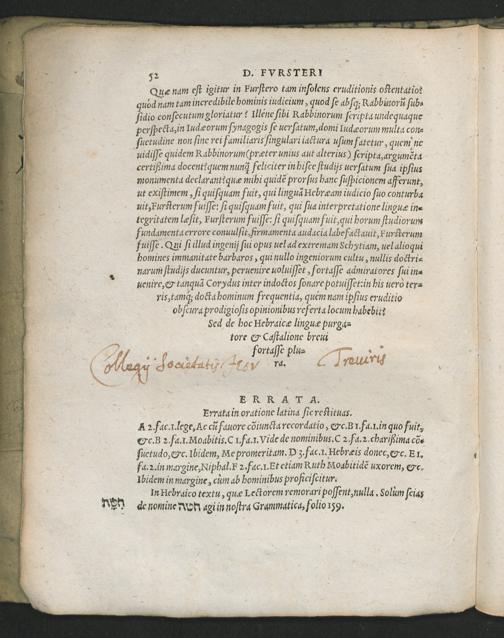 52 D. FVRSTERI
Quæ nam est igitur in Furstero tam insolens eruditionis ostentatio?
quod nam tam incredibile hominis iudicium, quod se absq; Rabbinorũ sub-
sidio consecutum gloriatur? Illéne sibi Rabbinorum scripta undequaque
perspecta, in Iudæorum synagogis se uersatum, domi Iudæorum multa con-
suetudine non sine rei familiaris singulari iactura usum fatetur, quem ne
uidisse quidem Rabbinorum (præter unius aut alterius) scripta, argumẽta
certissima docent? quem nunq̃ feliciter in hisce studijs uersatum sua ipsius
monumenta declarant? quæ mihi quidẽ prorsus hanc suspicionem afferunt,
ut existimem, si quisquam fuit, qui linguã Hebræam iudicio suo conturba
uit, Fursterum fuisse: si quisquam fuit, qui sua interpretatione linguæ in-
tegritatem læsit, Fursterum fuisse: si quisquam fuit, qui horum studiorum
fundamenta errore conuulsit, firmamenta audacia labefactauit, Fursterum
fuisse. Qui si illud ingenij sui opus uel ad extremam Schytiam, uel alioqui
homines immanitate barbaros, qui nullo ingeniorum cultu, nullis doctri-
narum studijs ducuntur, peruenire uoluisset, fortasse admiratores sui in-
uenire, & tanquã Corydus inter indoctos sonare potuisset: in his uerò ter-
ris, tamq; docta hominum frequentia, quem nam ipsius eruditio
obscura prodigiosis opinionibus referta locum habebit?
Sed de hoc Hebraicæ linguæ purga-
tore & Castalione breui
fortasse plu-
ra.
Collegij Societatis Jesv Treviris
ERRATA.
Errata in oratione latina sic restituas.
A 2. fac. 1. lege, Ac cũ fauore cõiuncta recordatio, &c. B 1. fa. 1. in quo fuit,
&c. B 2. fa. 1. Moabitis. C 1. fa. 1. Vide de nominibus. C 2. fa. 2. charißima cõ-
suetudo, &c. Ibidem, Me promeritam. D 3. fac. 1. Hebræis donec, &c. E 1.
fa. 2. in margine, Niphal. F 2. fac. 1. Et etiam Ruth Moabitidẽ uxorem, &c.
Ibidem in margine, cùm ab hominibus proficiscitur.
In Hebraico textu, quæ Lectorem remorari possent, nulla. Solùm scias
de nomine חטה agi in nostra Grammatica, folio 159.